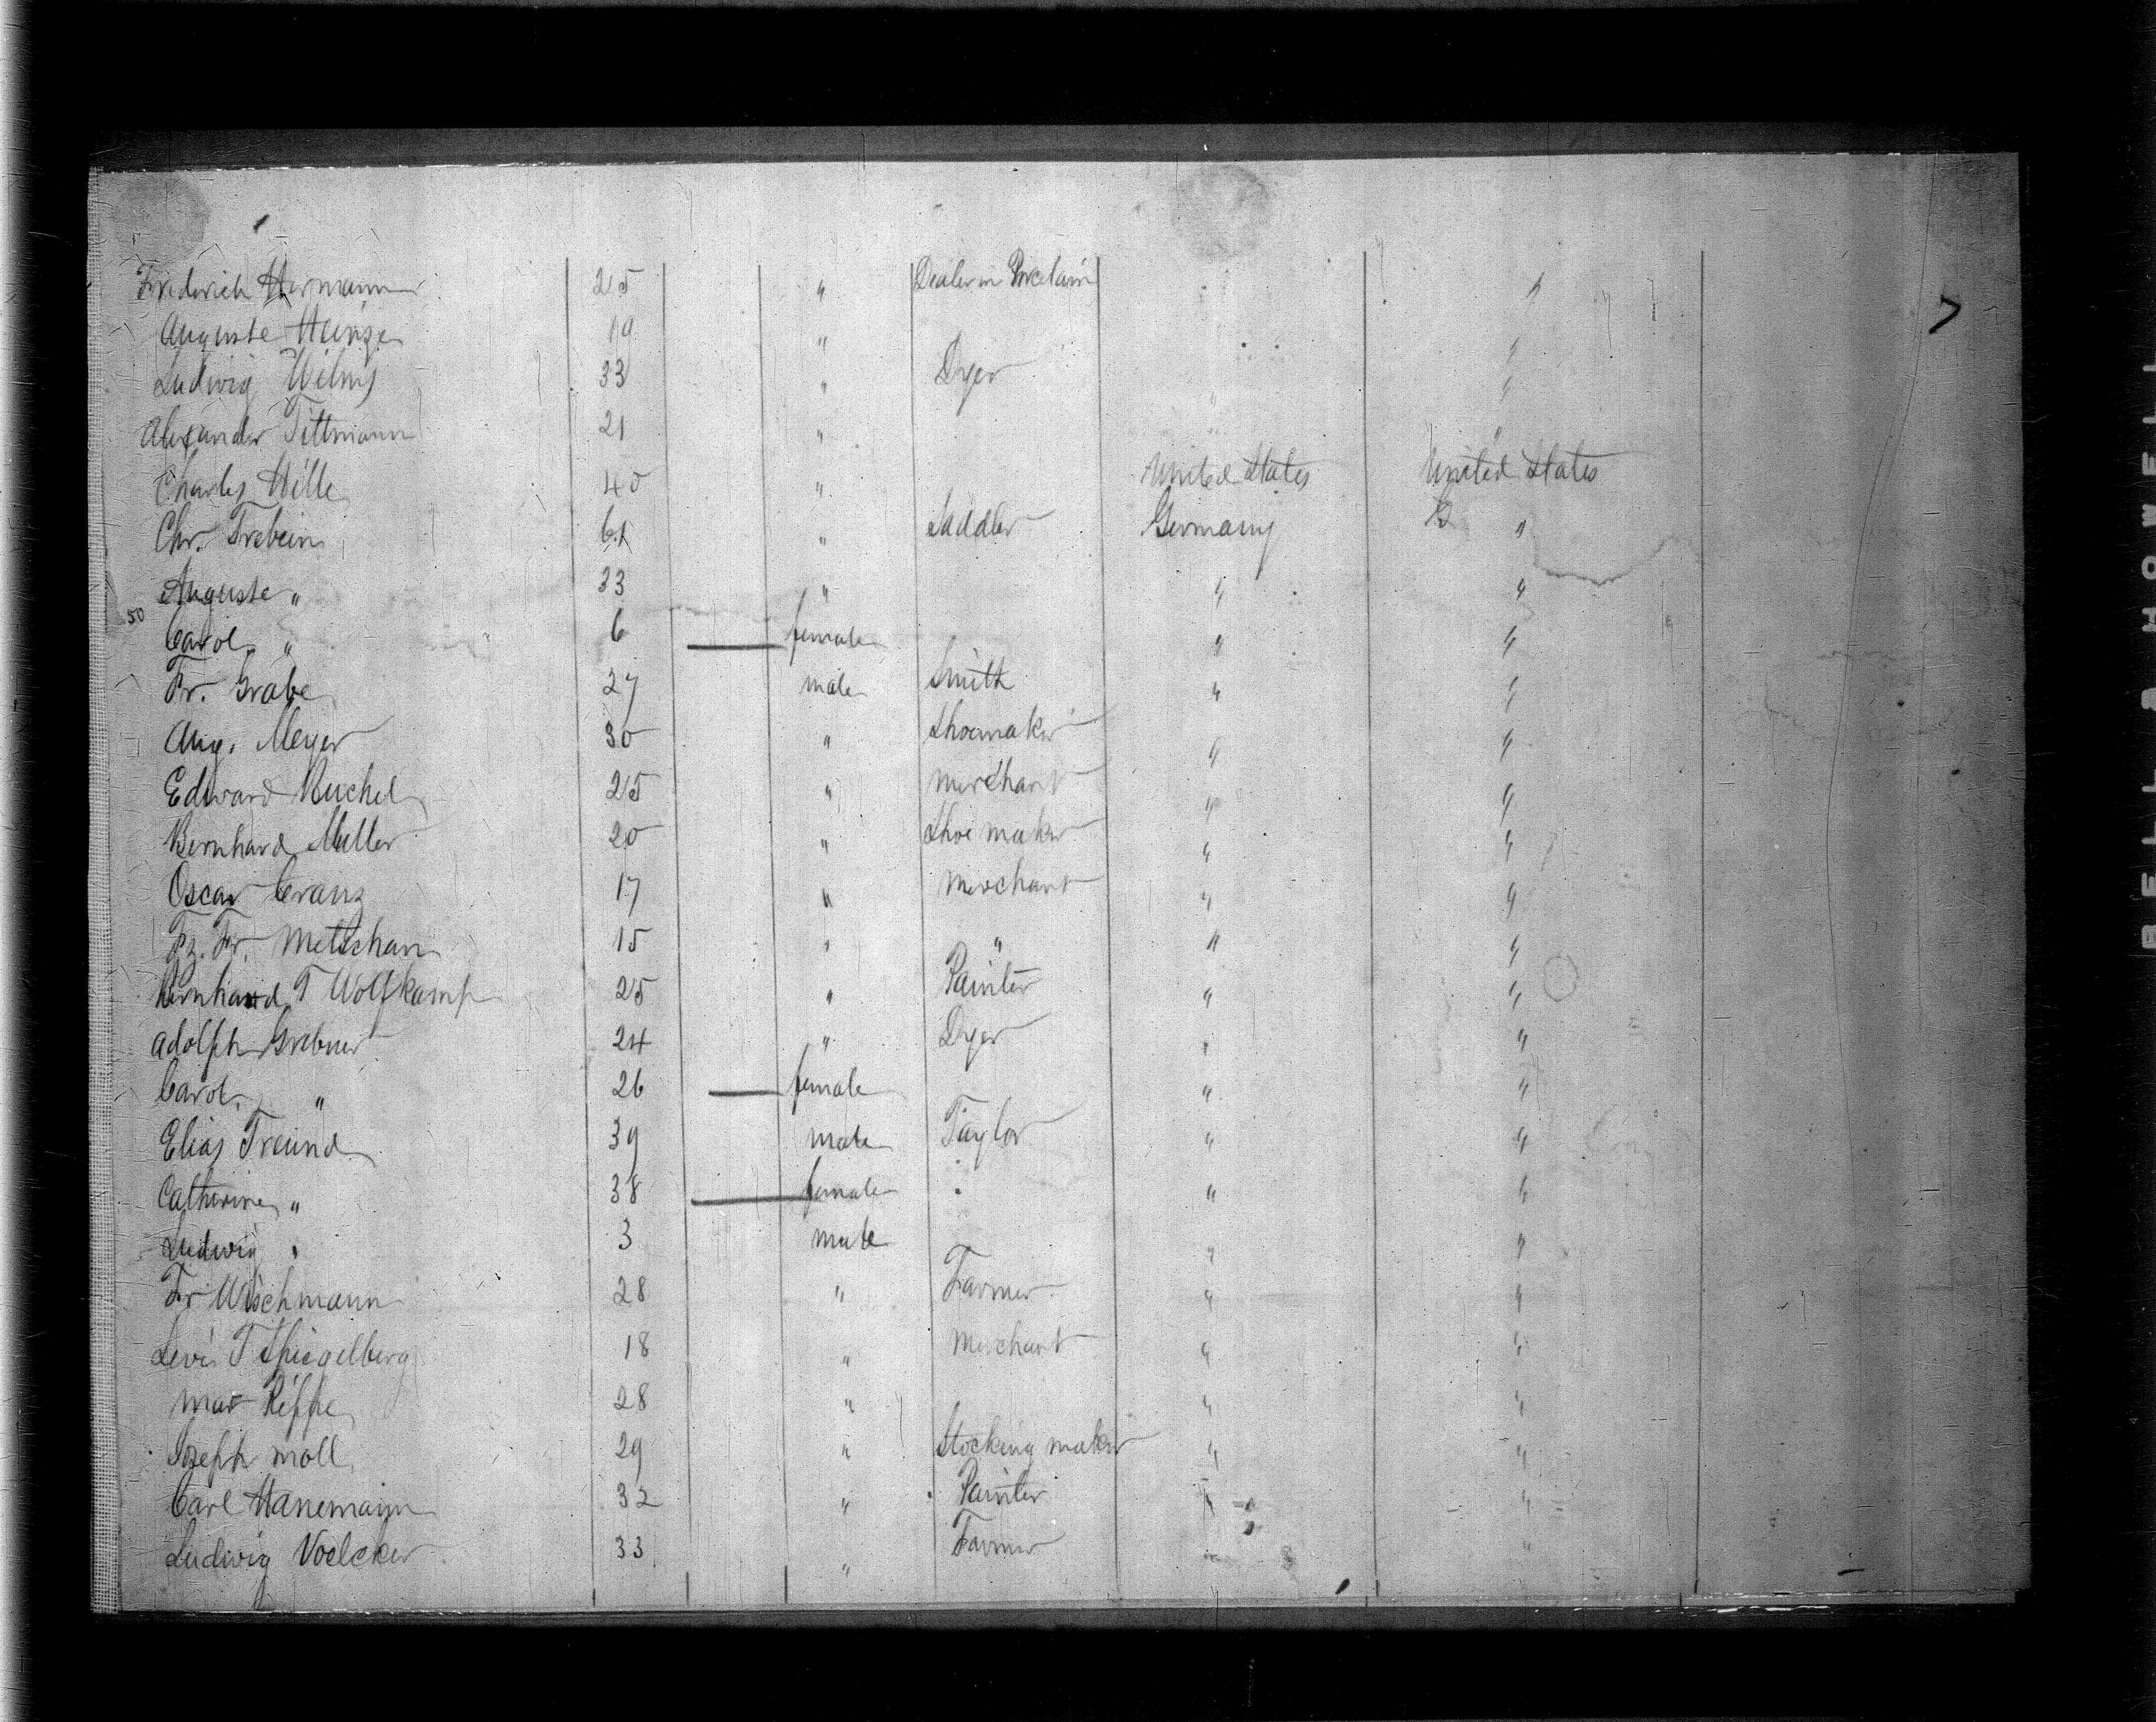 Frederich Hermann 25 " Dealer in Porcelain " "
Auguste Heinze 19 " " "
Ludwig Wilms 33 " Dyer " "
Alexander Tittmann 21 " " "
Charles Hille 40 " United States United States
Chr. Trebein 61 " Saddler Germany "
Auguste " 33 " " "
50
Carol. " 6 female " "
Fr. Grabe 27 male Smith " "
Aug. Meyer 30 " Shoemaker " "
Edward Ruchel 25 " merchant " "
Bernhard Muller 20 " Shoe maker " "
Oscar Cranz 17 " merchant " "
Fz. Fr. Metschan 15 " " " "
Bernhard T Wolfkamp 25 " Painter " "
Adolph Grebner 24 " Dyer " "
Carol. " 26 female " "
Elias Freund 39 male Taylor " "
Catherine " 38 female " "
Ludwig " 3 male " "
Fr Wischmann 28 " Farmer " "
Levi T Spiegelberg 18 " Merchant " "
Max Reppe 28 " " "
Joseph Moll 29 " Stocking maker " "
Carl Hanemann 32 " Painter " "
Ludwig Voelcker 33 " Farmer " "
BELL & HOWELL